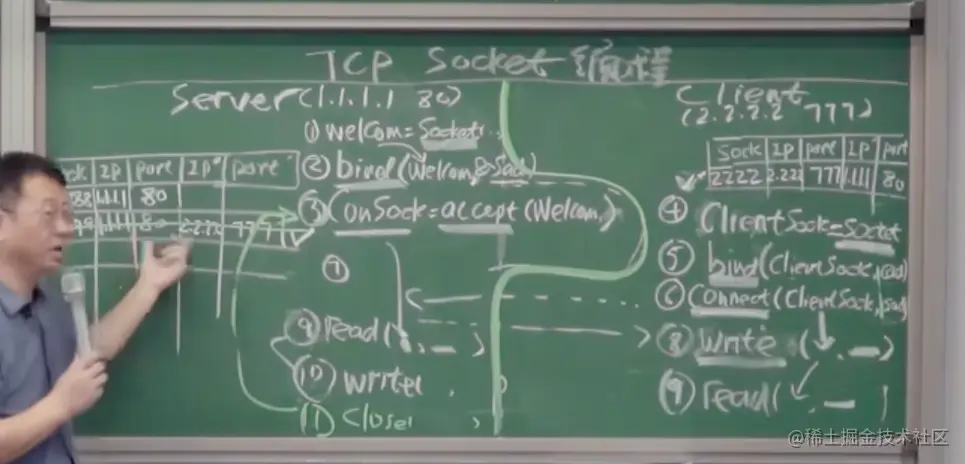 TCP Socket 编程
Server(1.1.1.1 80)
① Welcom=Socket(
② bind(Welcom,&Sad)
③ ConSock=accept(Welcom,)
⑦
⑨ read( . — )
⑩ write(
11) Close(
IP port IP' port'
1.1.1.1 80
1.1.1.1 80 2.2.2.2 777
Client
(2.2.2.2 777)
Sock IP port IP' port
2222 2.2.22 777 1.1.1.1 80
④ ClientSock=Socket
⑤ bind(ClientSock,
⑥ Connect(ClientSock,sad)
⑧ Write ( , — )
⑨ read( , — )
@稀土掘金技术社区